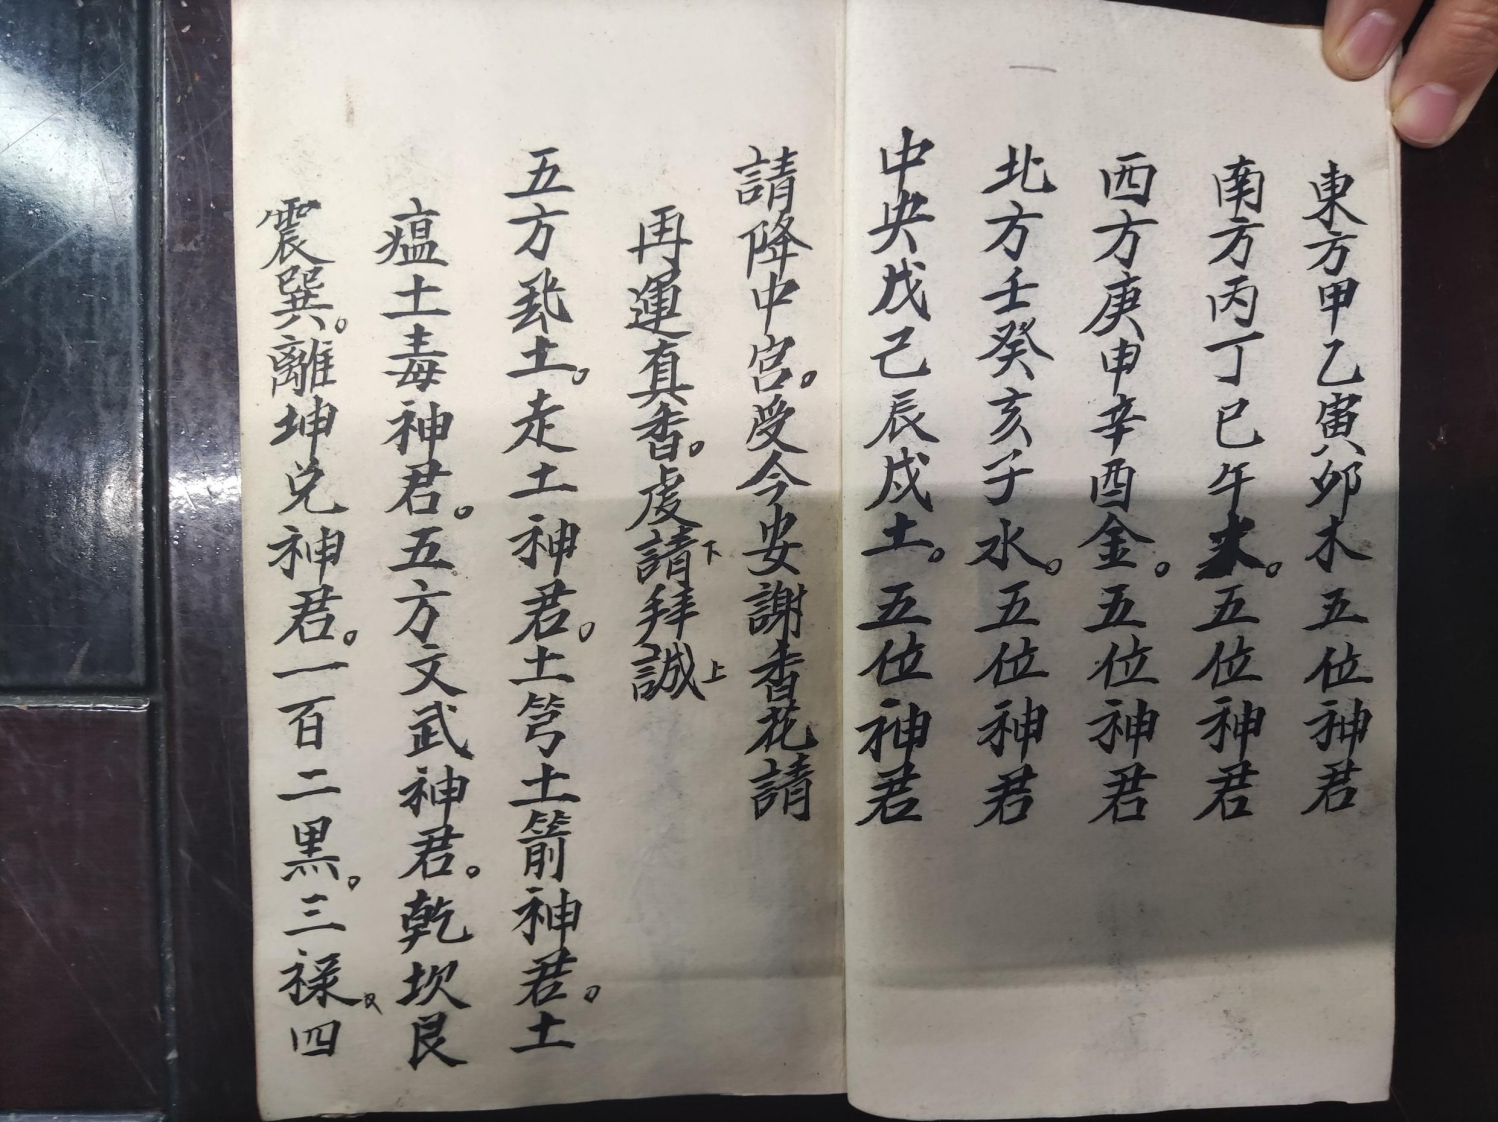 東方甲乙寅卯木五位神君
南方丙丁巳午火。五位神君
西方庚申辛酉金。五位神君
北方壬癸亥子水。五位神君
中央戊己辰戌土。五位神君
請降中宮。受今安謝香花請
再運真香。虔請下拜誠上
五方土。走土神君。土弓土箭神君。土
瘟土毒神君。五方文武神君。乾坎艮
震巽。離坤兌神君。一百二黑。三祿。四